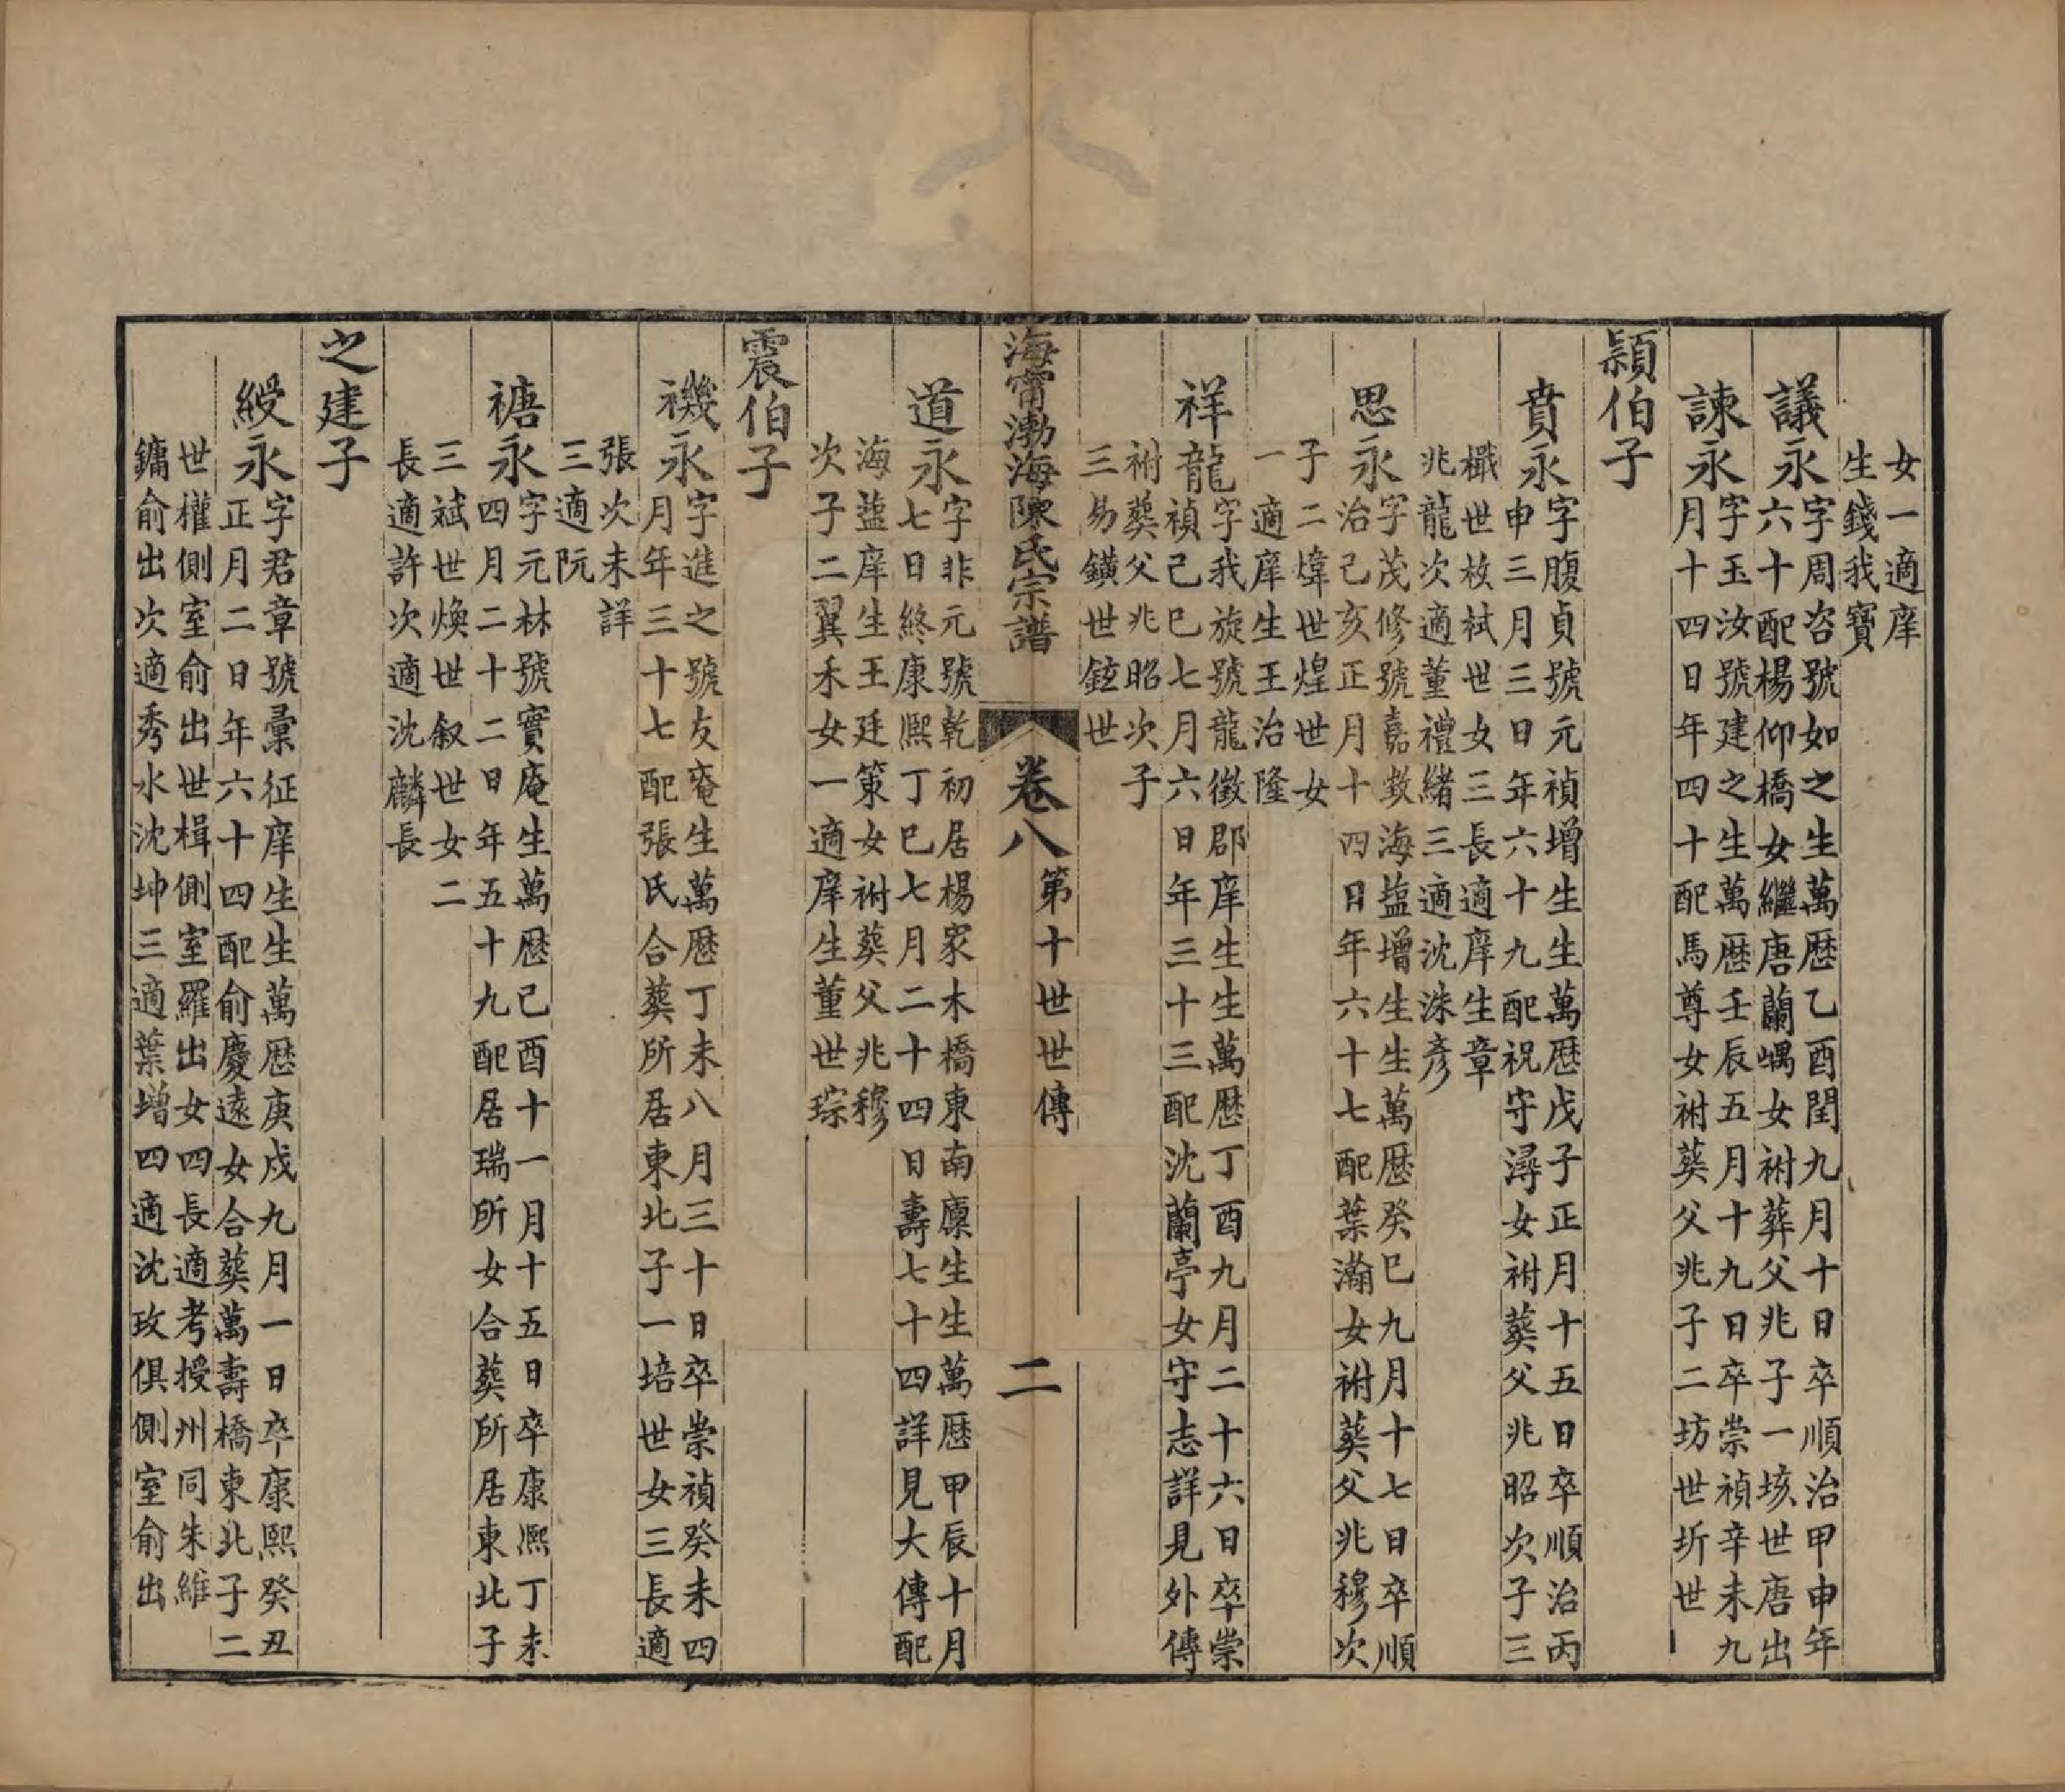 女一適庠
生錢我寶
議永
字周咨號如之生萬歷乙酉閏九月十日卒順治甲申年
六十配楊仰橋女繼唐蘭嵎女祔葬父兆子一垓世唐出
諫永
字玉汝號建之生萬歷壬辰五月十九日卒崇禎辛未九
月十四日年四十配馬尊女祔葬父兆子二坊世圻世
穎伯子
賁永
字腹貞號元禎增生生萬歷戊子正月十五日卒順治丙
申三月三日年六十九配祝守潯女祔葬父兆昭次子三
櫼世枚栻世女三長適庠生章
兆龍次適董禮緒三適沈洙彥
思永
字茂修號嘉敎海盐增生生萬歷癸巳九月十七日卒順
治己亥正月十四日年六十七配葉瀚女祔葬父兆穆次
子二煒世煌世女
一適庠生王治隆
祥龍
字我旋號龍徵郡庠生生萬歷丁酉九月二十六日卒崇
禎己巳七月六日年三十三配沈蘭亭女守志詳見外傳
祔葬父兆昭次子
三易鐄世鉉世
海甯渤海陳氏宗譜
卷八
第十世世傳
二
道永
字非元號乾初居楊家木橋東南廩生生萬歷甲辰十月
七日終康熙丁巳七月二十四日壽七十四詳見大傳配
海盐庠生王廷策女祔葬父兆穆
次子二翼禾女一適庠生董世琮
震伯子
禨永
字進之號友菴生萬歷丁未八月三十日卒崇禎癸未四
月年三十七配張氏合葬所居東北子一培世女三長適
張次未詳
三適阮
禟永
字元林號實庵生萬歷己酉十一月十五日卒康熙丁未
四月二十二日年五十九配居瑞所女合葬所居東北子
三斌世煥世叙世女二
長適許次適沈麟長
之建子
綬永
字君章號彙征庠生生萬歷庚戌九月一日卒康熙癸丑
正月二日年六十四配俞慶遠女合葬萬壽橋東北子二
世權側室俞出世楫側室羅出女四長適考授州同朱維
鏞俞出次適秀水沈坤三適葉增四適沈玫俱側室俞出